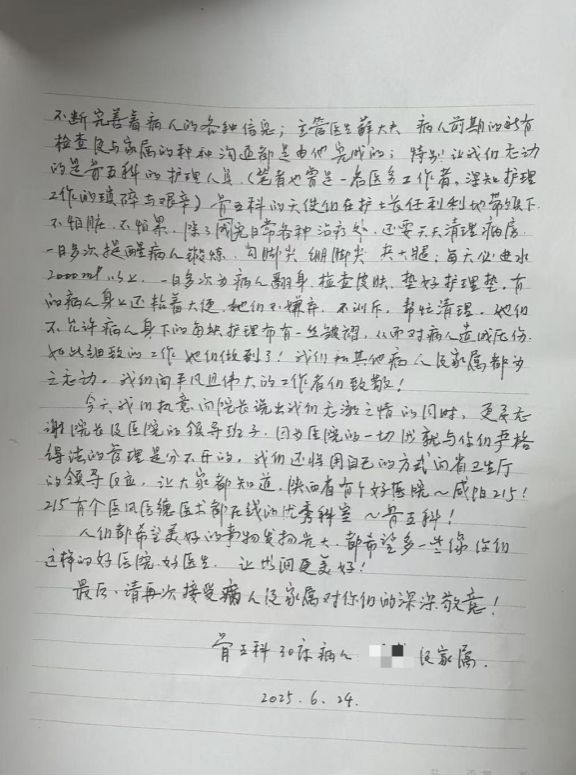 不断完善着病人的各种信息；主管医生薛大夫 病人前期的所有
检查及与家属的种种沟通都是由他完成的；特别让我们感动
的是骨五科的护理人员（笔者也曾是一名医务工作者，深知护理
工作的琐碎与艰辛）骨五科的天使们在护士长任利利地带领下
不怕脏、不怕累，除了完成日常各种治疗外，还要天天清理病房
一日多次提醒病人锻炼，勾脚尖 绷脚尖 夹大腿；每天必要水
2000ml以上，一日多次为病人翻身，检查皮肤、垫好护理垫，有
的病人身上还粘着大便，她们不嫌弃，不训斥，帮忙清理。她们
不允许病人身下的每块护理布有一丝皱褶，从而对病人造成压伤
如此细致的工作她们做到了！我们和其他病人及家属都为
之感动。我们向平凡且伟大的工作者们致敬！
今天我们执意向院长说出我们感激之情的同时，更要感
谢院长及医院的领导班子，因为医院的一切成就与你们严格
得法的管理是分不开的，我们还将用自己的方式向省卫生厅
的领导反应，让大家都知道，陕西省有个好医院～咸阳215！
215有个医风医德医术都在线的优秀科室～骨五科！
人们都希望美好的事物发扬光大，都希望多一些像你们
这样的好医院、好医生，让世间更美好！
最后、请再次接受病人及家属对你们的深深敬意！
骨五科30床病人 及家属.
2025.6.24.